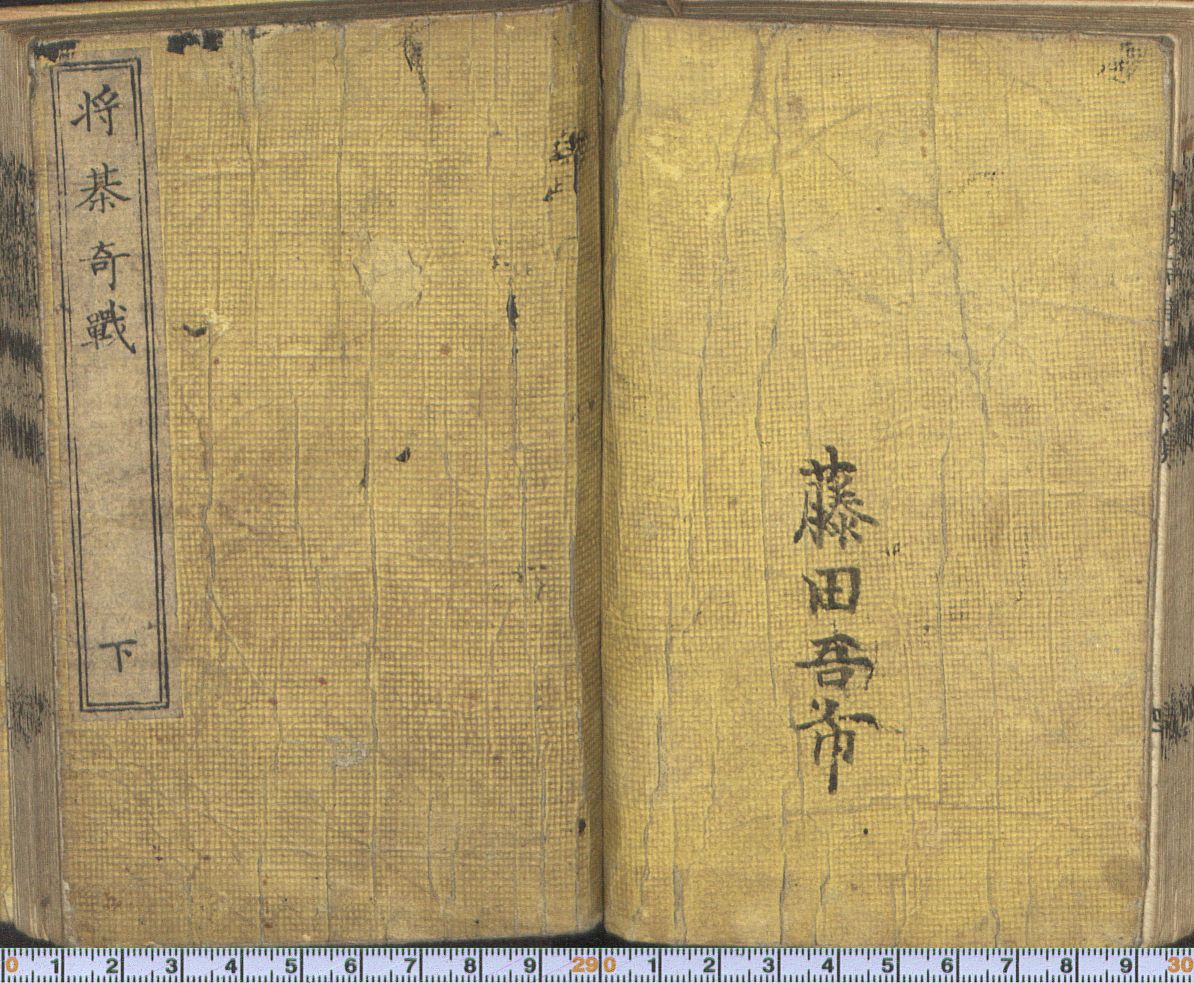 藤田吾市
将棊奇戰
下
0 1 2 3 4 5 6 7 8 9 29 0 1 2 3 4 5 6 7 8 9 30